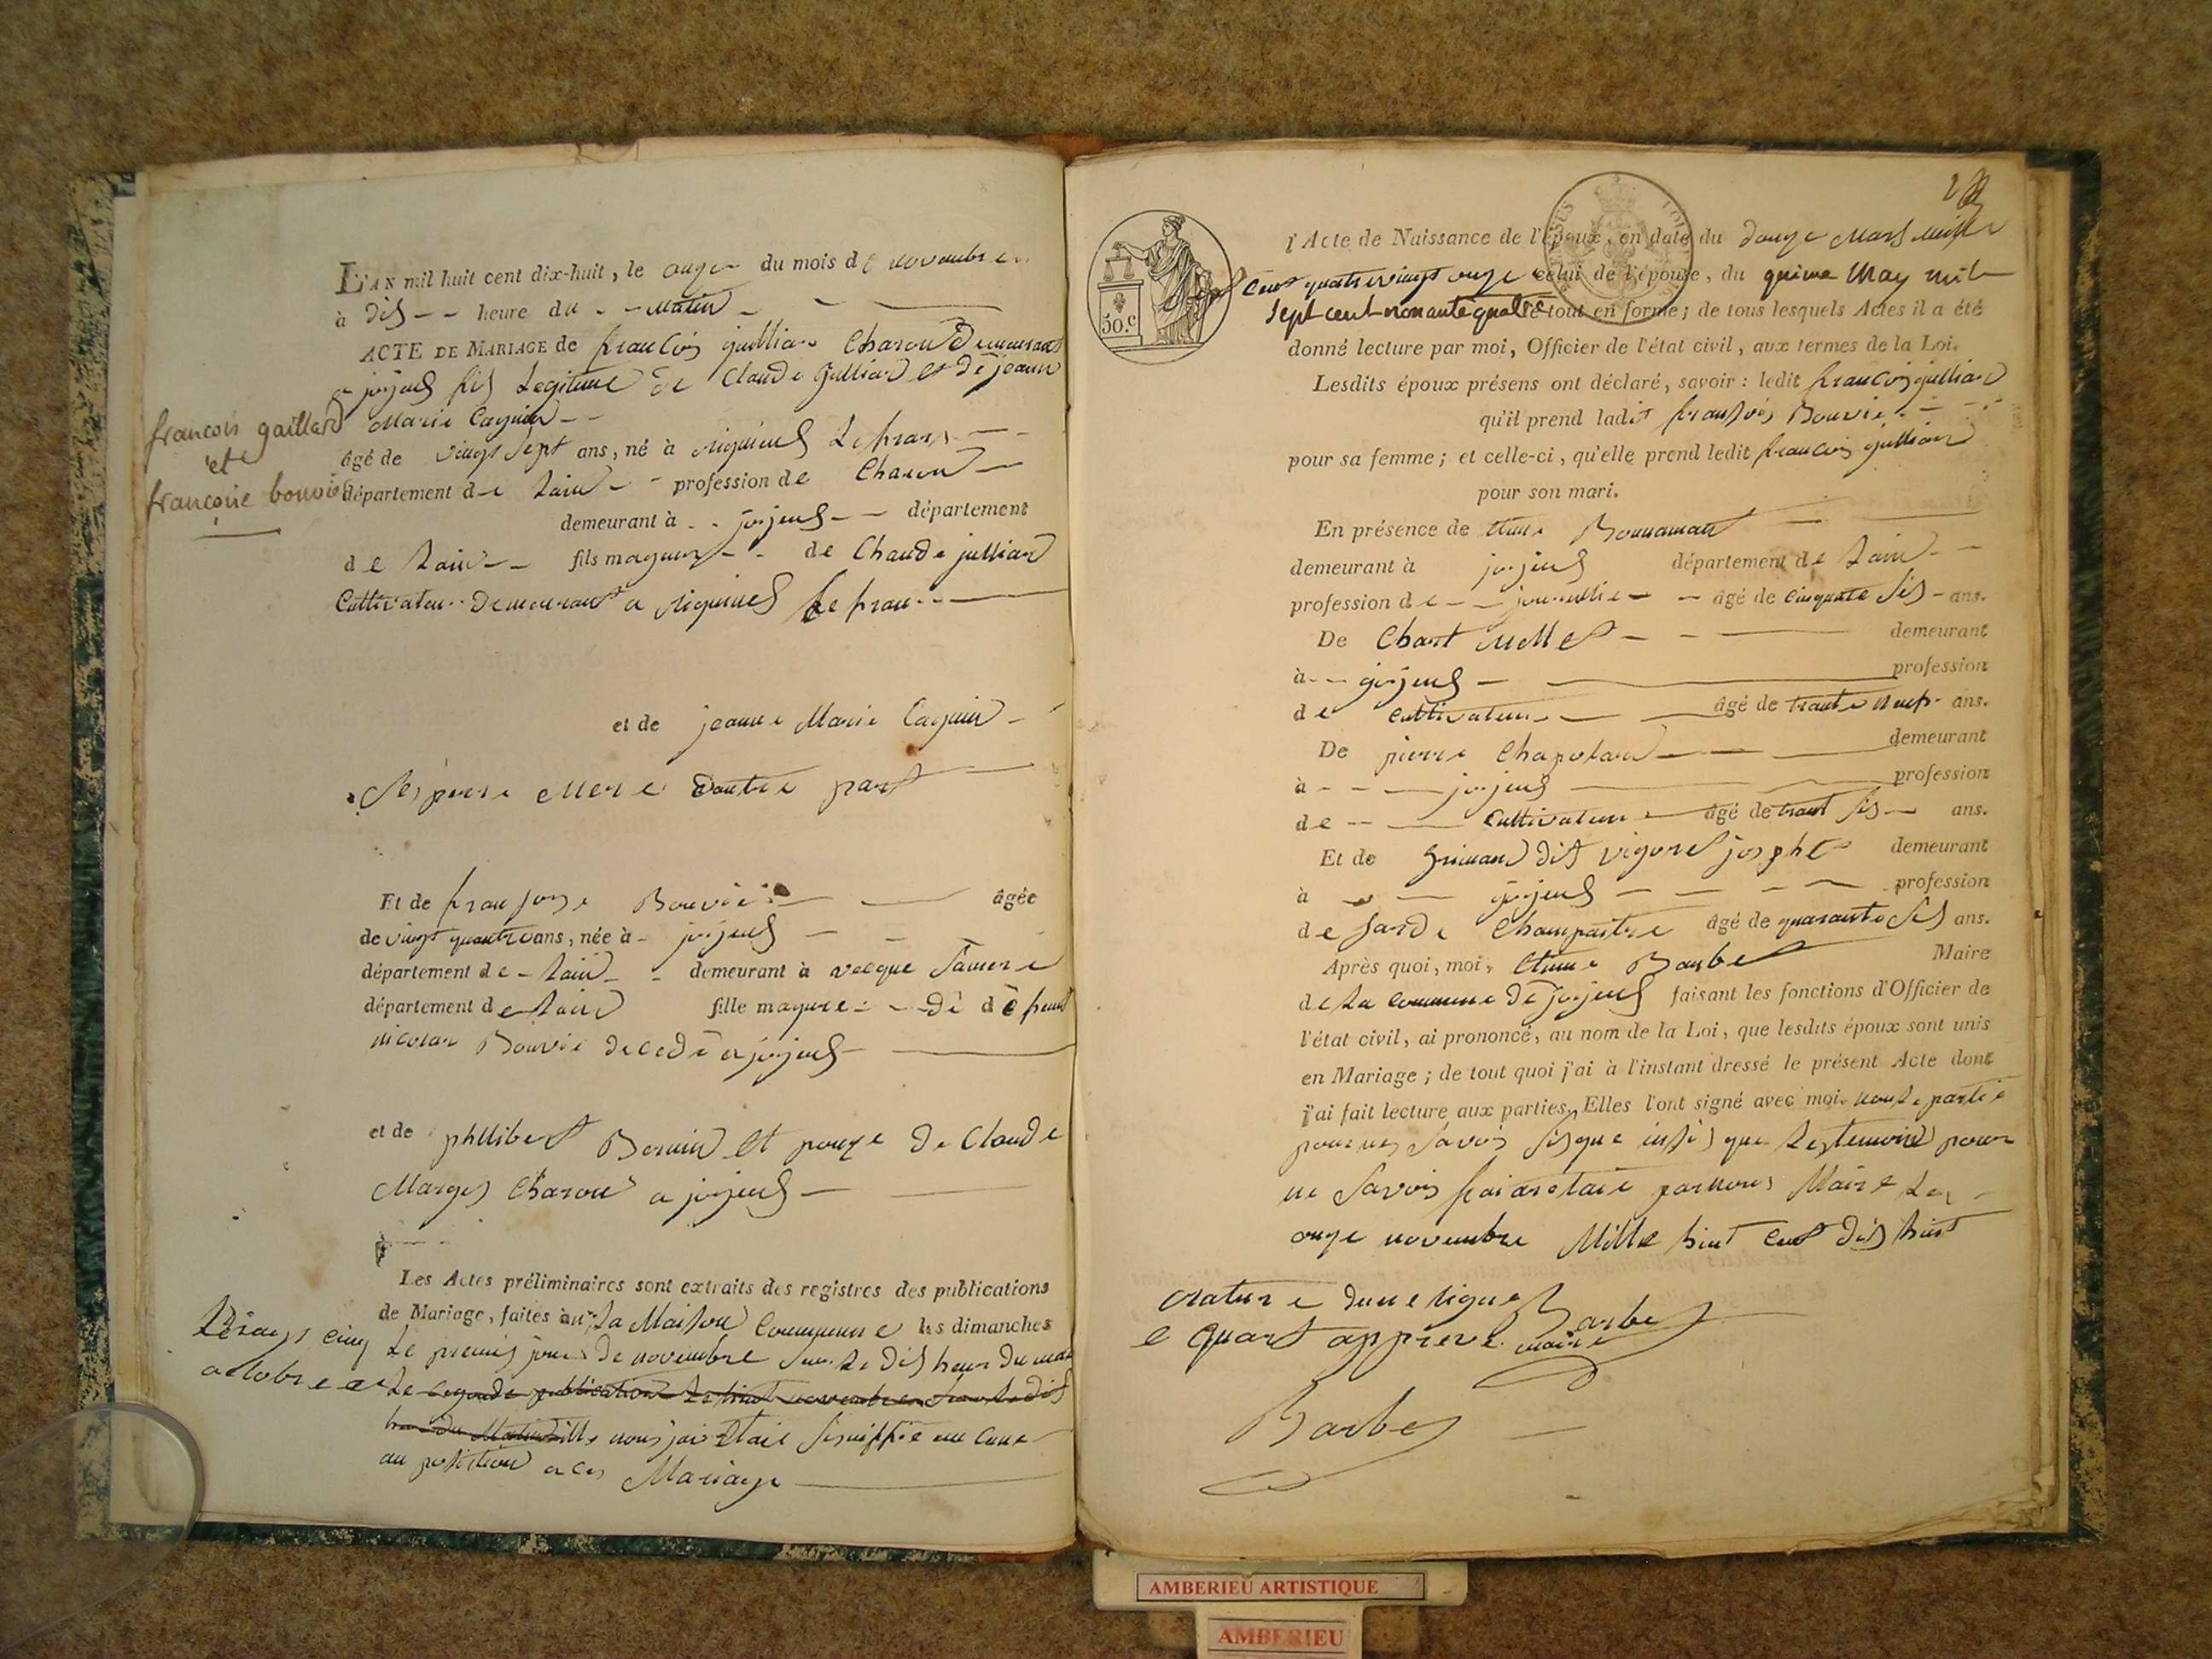 L'AN mil huit cent dix-huit, le onze du mois de novembre
à dis heure du matin
ACTE DE MARIAGE de francois jullian Charon demeurant
a jujeus fis Legitime de Claude jullian et de jeanne
Marie Caguin
francois gaillard
et
francoise bouvier
âgé de vingt sept ans, né à
département de Lain profession de Charon
demeurant à jujeus département
de Lain fils mageur de Claude jullian
Cultivateur Demeurant a
et de jeanne Marie Caguin
Ses perre e Mere Dautre part
Et de fransoise Bouvie âgée
de vingt quatre ans, née à jujeus
département de Lain demeurant à
département de Lain fille mageure de defunt
nicolas Bouvie decedé a jujeus
et de phillibert et pouze de Claude
Marges Charon a jujeus
Les Actes préliminaires sont extraits des registres des publications
de Mariage, faites à la Maison Commune les dimanches
Le vingt cinq
octobre et
Le premier jour de novembre sur Le dis heur du matin
Le segonde publication Le huit novembre sur Le dis
heur du Matin Ille nous jai Etait siniffié aucune
au position a ces Mariage
l'Acte de Naissance de l'époux, en date du douze Mars mille
sept cent quatre vingt onze celui de l'épouse, du May mil
Sept cent nonante quatre le tout en forme; de tous lesquels Actes il a été
50.c
donné lecture par moi, Officier de l'état civil, aux termes de la Loi.
Lesdits époux présens ont déclaré, savoir: ledit francois jullian
qu'il prend ladit fransoise Bouvie
pour sa femme; et celle-ci, qu'elle prend ledit francois jullian
pour son mari.
En présence de Etiene Bonnamant
demeurant à jujeus département de Lain
profession de journallie âgé de cinquante sis ans.
De demeurant
à jujeus profession
de Cultivateur âgé de trante neuf ans.
De pierre Chapolard demeurant
à jujeus profession
de Cultivateur âgé de trant sis ans.
Et de Grimand dit vigoret josephe demeurant
à jujeus profession
de Garde Champaitre âgé de quarante sis ans.
Après quoi, moi, Etiene Barbe Maire
de La commune de jujeus faisant les fonctions d'Officier de
l'état civil, ai prononcé, au nom de la Loi, que lesdits époux sont unis
en Mariage; de tout quoi j'ai à l'instant dressé le présent Acte dont
j'ai fait lecture aux parties, Elles l'ont signé avec moi. non Le partie
pour ne savoir que Les temoins pour
ne savoir fai aretaie par nous Maire Le
onze novembre Mille huit cent dis huit
rature dune ligne
e quart appreve
Barbe
maire
Barbe
AMBERIEU ARTISTIQUE
AMBERIEU